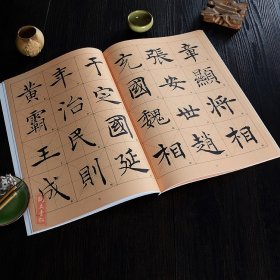 章顯將相
張安世趙
充國魏相
于定國延
年治民則
黃霸王成